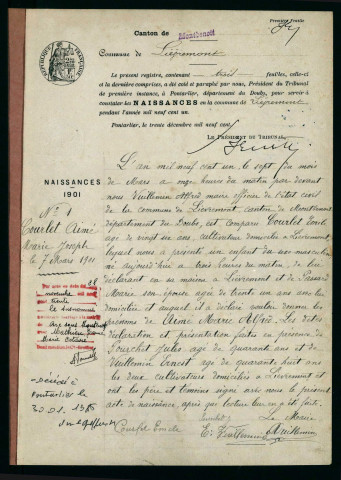 Premier Feuille
Canton de Montbenoit
Commune de Liévremont
Le présent registre, contenant trois feuilles, celle-ci
et la dernière comprises, a été coté et paraphé par nous, Président du Tribunal
de première instance, à Pontarlier, département du Doubs, pour servir à
constater les NAISSANCES en la commune de Liévremont
pendant l'année mil neuf cent un.
Pontarlier, le trente décembre mil neuf cent
LE PRÉSIDENT DU TRIBUNAL,
RÉPUBLIQUE FRANÇAISE
NAISSANCES
1901
N° 1
Courlet Aimé
Marie Joseph
le 7 Mars 1901
L'an mil neuf cent un le sept du mois
de Mars à onze heures du matin par devant
nous Vuillemin Alfred maire officier de l'état civil
de la commune de Liévremont, canton de Montbenoit
département du Doubs, est comparu Courlet Emile
âgé de vingt six ans, cultivateur domicilié à Liévremont,
lequel nous a présenté un enfant du sexe masculin
né aujourd'hui à trois heures du matin, de lui
déclarant en sa maison à Liévremont et de
Marie son épouse âgée de trente un ans avec lui
domiciliée et auquel il a déclaré vouloir donner les
prénoms de Aimé Marie Les dites
déclaration et présentation faites en présence de
Pourchet Jules âgé de quarante ans et de
Vuillemin Ernest âgé de quarante huit ans
les deux cultivateurs domiciliés à Liévremont et
ont les père et témoins signé avec nous le présent
acte de naissance, après que lecture leur en a été faite.
Le Maire
Courlet Emile
E. Vuillemin
Vuillemin
Décédé à
Pontarlier le